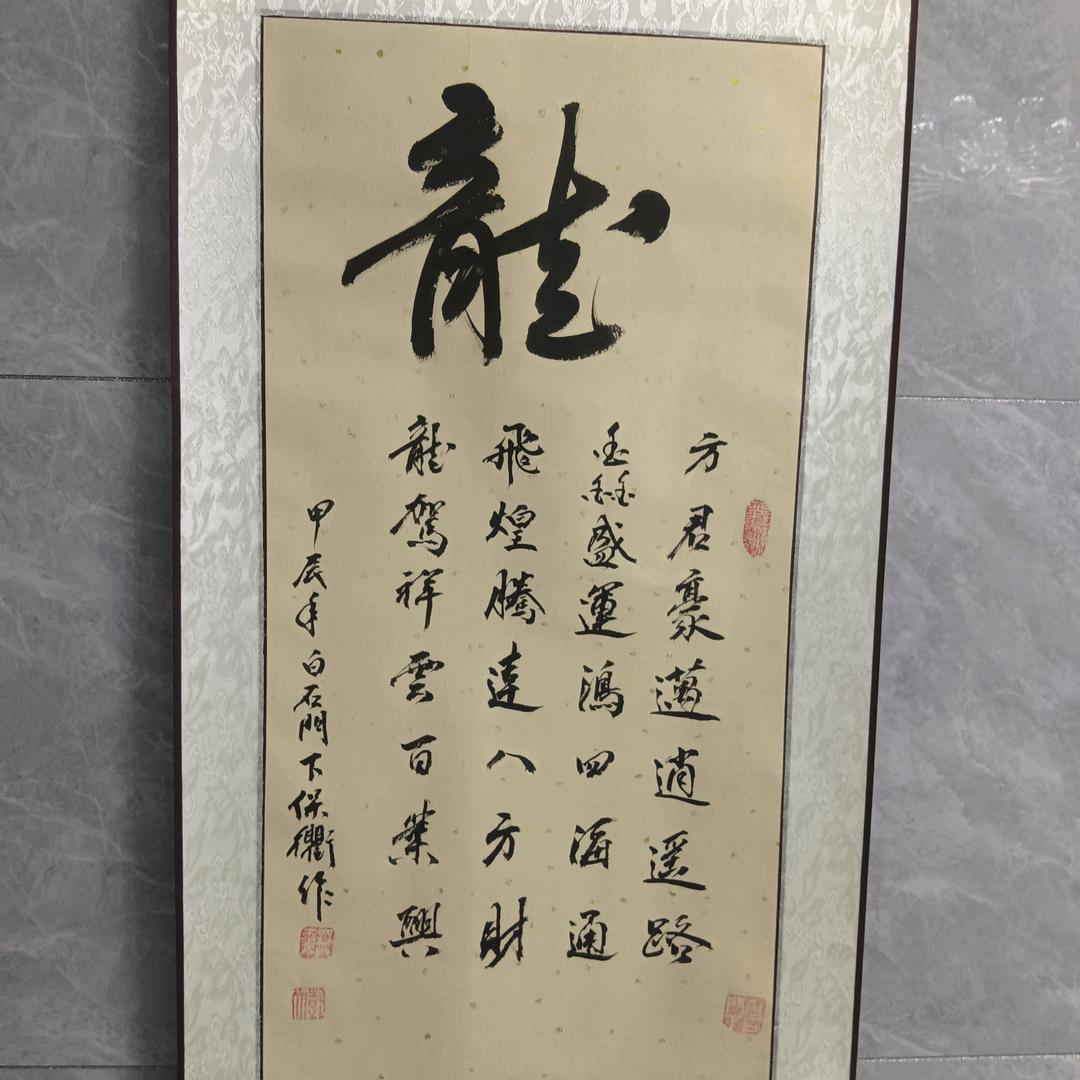 龍
方君豪邁逍遥路
鑫盛運鴻四海通
飛煌騰達八方財
龍駕祥雲百業興
甲辰年白石門下保衢作